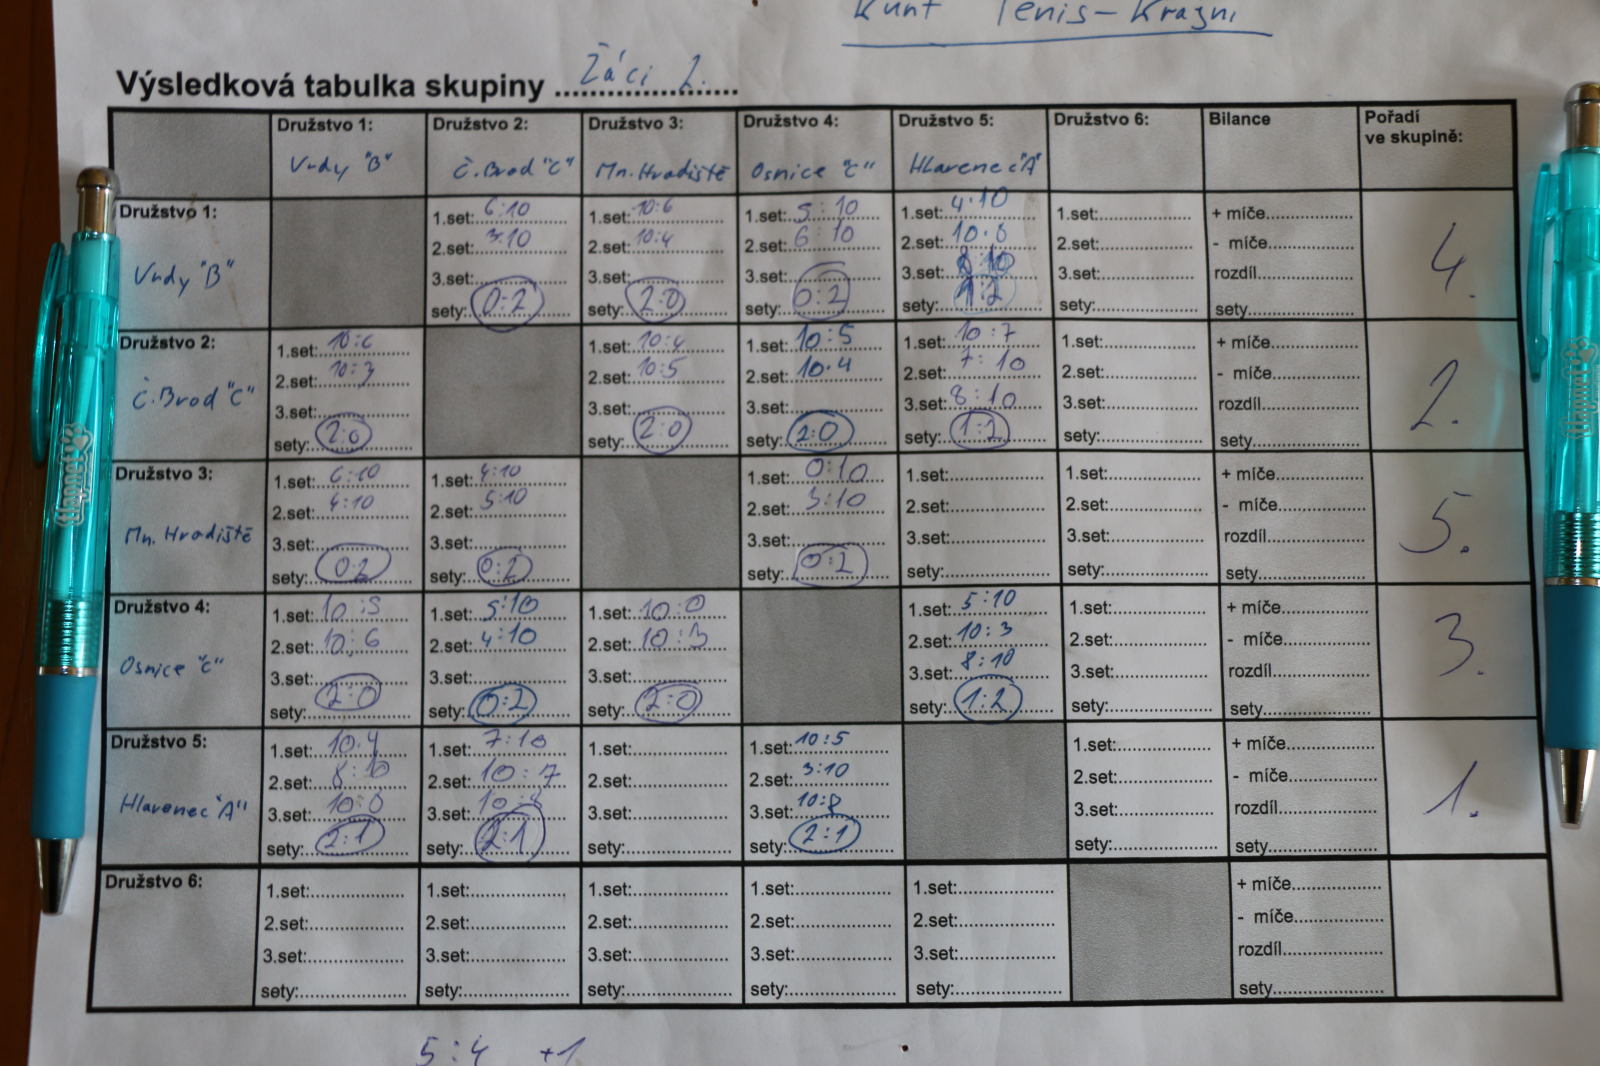 Kunt Tenis-Krazni
Výsledková tabulka skupiny Žáci 2.
Družstvo 1: Družstvo 2: Družstvo 3: Družstvo 4: Družstvo 5: Družstvo 6: Bilance Pořadí
ve skupině:
Vrdy "B" Č.Brod "C" Mn.Hradiště Osnice "C" Hlavenec "A"
Družstvo 1: 1.set: 6:10 1.set: 10:6 1.set: 5:10 1.set: 4:10 1.set: + míče
2.set: 3:10 2.set: 10:4 2.set: 6:10 2.set: 10:8 2.set: - míče 4.
Vrdy "B" 3.set: 3.set: 3.set: 3.set: 8:10 3.set: rozdíl
sety: 0:2 sety: 2:0 sety: 0:2 sety: 1:2 sety: sety
Družstvo 2: 1.set: 10:6 1.set: 10:4 1.set: 10:5 1.set: 10:7 1.set: + míče
2.set: 10:3 2.set: 10:5 2.set: 10:4 2.set: 7:10 2.set: - míče
Č.Brod "C" 3.set: 3.set: 3.set: 3.set: 8:10 3.set: rozdíl 2.
sety: 2:0 sety: 2:0 sety: 2:0 sety: 1:2 sety: sety
Družstvo 3: 1.set: 6:10 1.set: 4:10 1.set: 0:10 1.set: 1.set: + míče
2.set: 4:10 2.set: 5:10 2.set: 3:10 2.set: 2.set: - míče
Mn. Hradiště 3.set: 3.set: 3.set: 3.set: 3.set: rozdíl 5.
sety: 0:2 sety: 0:2 sety: 0:2 sety: sety: sety
Družstvo 4: 1.set: 10:5 1.set: 5:10 1.set: 10:0 1.set: 5:10 1.set: + míče
2.set: 10:6 2.set: 4:10 2.set: 10:3 2.set: 10:3 2.set: - míče 3.
Osnice "C" 3.set: 3.set: 3.set: 3.set: 8:10 3.set: rozdíl
sety: 2:0 sety: 0:2 sety: 2:0 sety: 1:2 sety: sety
Družstvo 5: 1.set: 10:4 1.set: 7:10 1.set: 1.set: 10:5 1.set: + míče
2.set: 8:10 2.set: 10:7 2.set: 2.set: 3:10 2.set: - míče
Hlavenec "A" 3.set: 10:8 3.set: 10:8 3.set: 3.set: 10:8 3.set: rozdíl 1.
sety: 2:1 sety: 2:1 sety: sety: 2:1 sety: sety
Družstvo 6: 1.set: 1.set: 1.set: 1.set: 1.set: + míče
2.set: 2.set: 2.set: 2.set: 2.set: - míče
3.set: 3.set: 3.set: 3.set: 3.set: rozdíl
sety: sety: sety: sety: sety: sety
5:4 +1